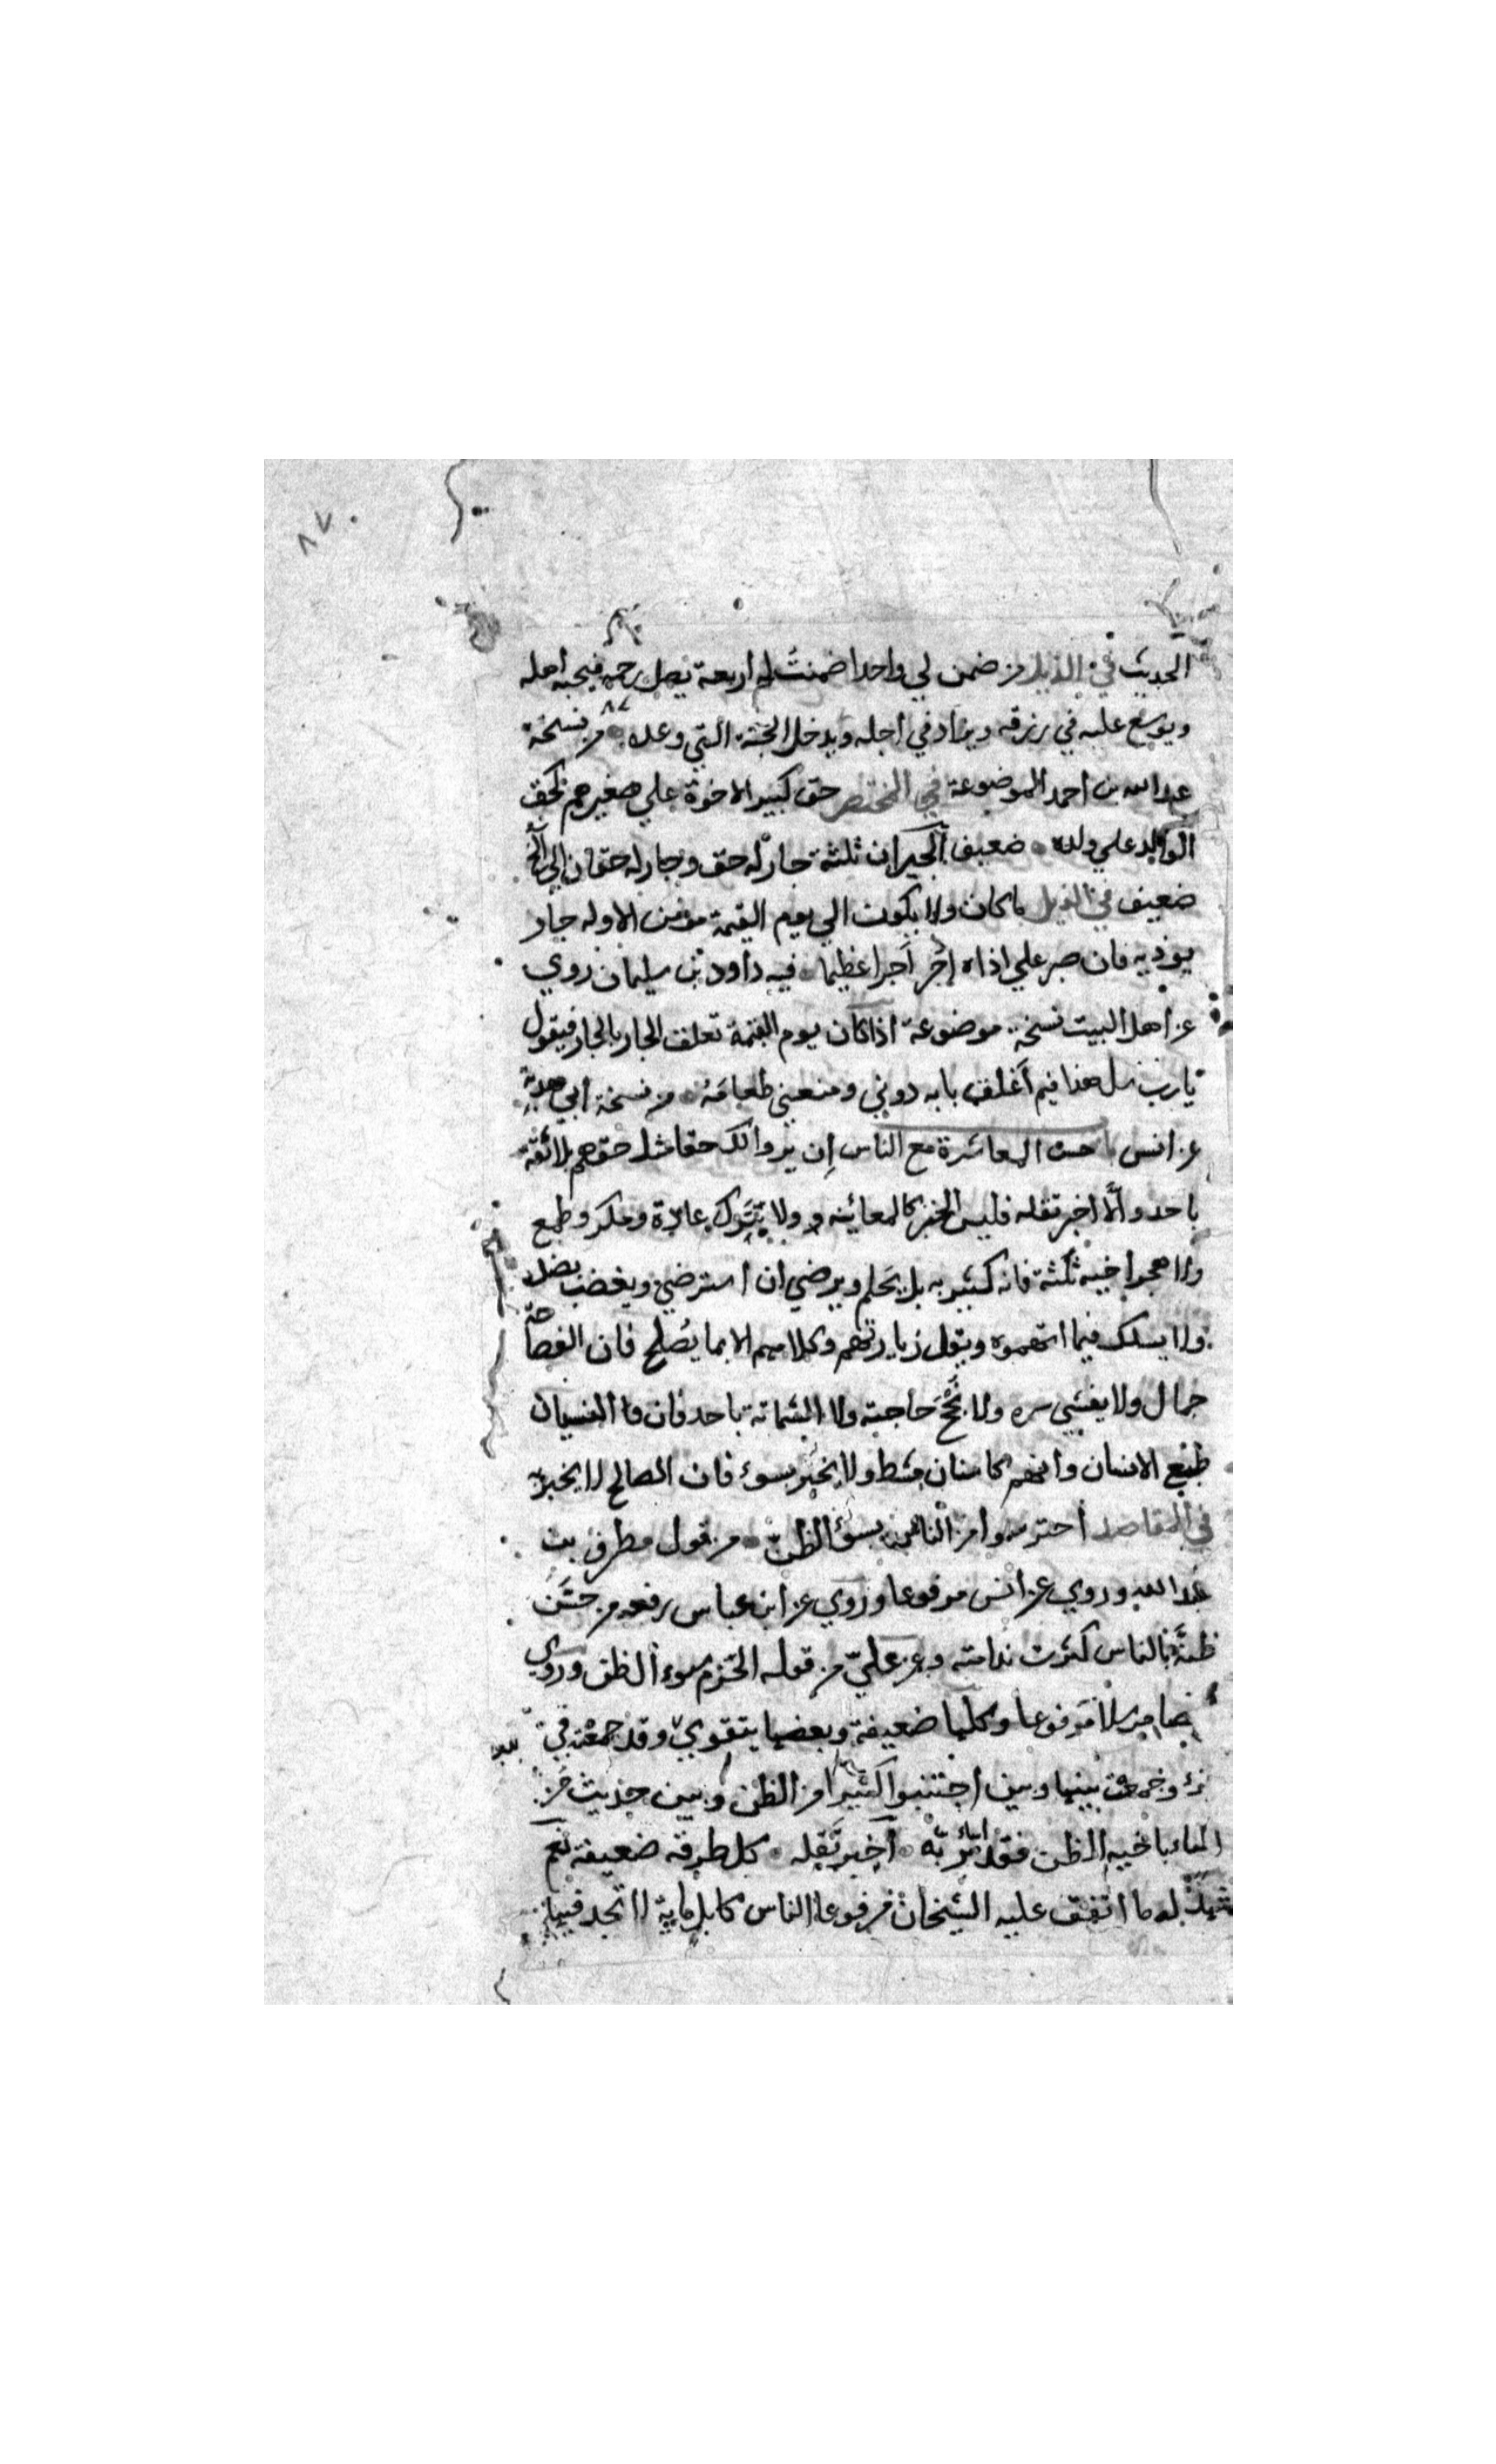 ٨٧
الحديث في الذيل من ضمن لي واحدا ضمنت له اربعة يصل رحمه فيحبه اهله
ويوسع عليه في رزقه ويزاد في اجله ويدخل الجنة التي وعده من نسخة
عبد الله بن احمد الموضوعة في المختصر حق كبير الاخوة علي صغيرهم كحق
الوالد علي ولده ضعيف الجيران ثلثة جار له حق وجار له حقان الي الخ
ضعيف في الذيل ما كان ولا يكون الي يوم القيمة مؤمن الا وله جار
يوذيه فان صبر علي اذاه اجر اجرا عظيما فيه داود بن سليمان روي
عن اهل البيت نسخة موضوعة اذا كان يوم القيمة تعلق الجار بالجار فيقول
يا رب سل هذا فيم اغلق بابه دوني ومنعني طعامه من نسخة ابي هدبة
عن انس حسن المعاشرة مع الناس ان يروا لك حقا مثل حقهم بلا ثقة
باحد والا اخبر تقله فليس الخبر كالمعاينه ولا يترك عادة ومكر وطمع
ولا هجر اخيه ثلثة فانه كبير به بل يحلم ويرضي ان استرضي ويغضب
ولا يسلك فيما اتهموه ويقل زيارتهم وكلامهم الا بما يصلح فان
جمال ولا يفشي سره ولا حاجته ولا الشماتة باحد فان النسيان
طبع الانسان وانهم كاسنان مشط ولا يخبر بسوء فان الصالح لا يخبر
في المقاصد احترسوا من الناس بسوء الظن من قول مطرف بن
عبد الله وروي عن انس مرفوعا وروي عن ابن عباس رفعه من حسن
ظنه بالناس كثرت ندامته وعن علي من قوله الحزم سوء الظن وروي
مرسلا مرفوعا وكلها ضعيفة وبعضها يتقوي وقد جمعته في
جزء وجمعت بينها وبين اجتنبوا كثيرا من الظن وبين حديث من
اساء باخيه الظن فقد اساء بربه اخبر تقله كل طرقه ضعيفة نعم
شهد له ما اتفق عليه الشيخان مرفوعا الناس كابل ماية لا تجد فيها